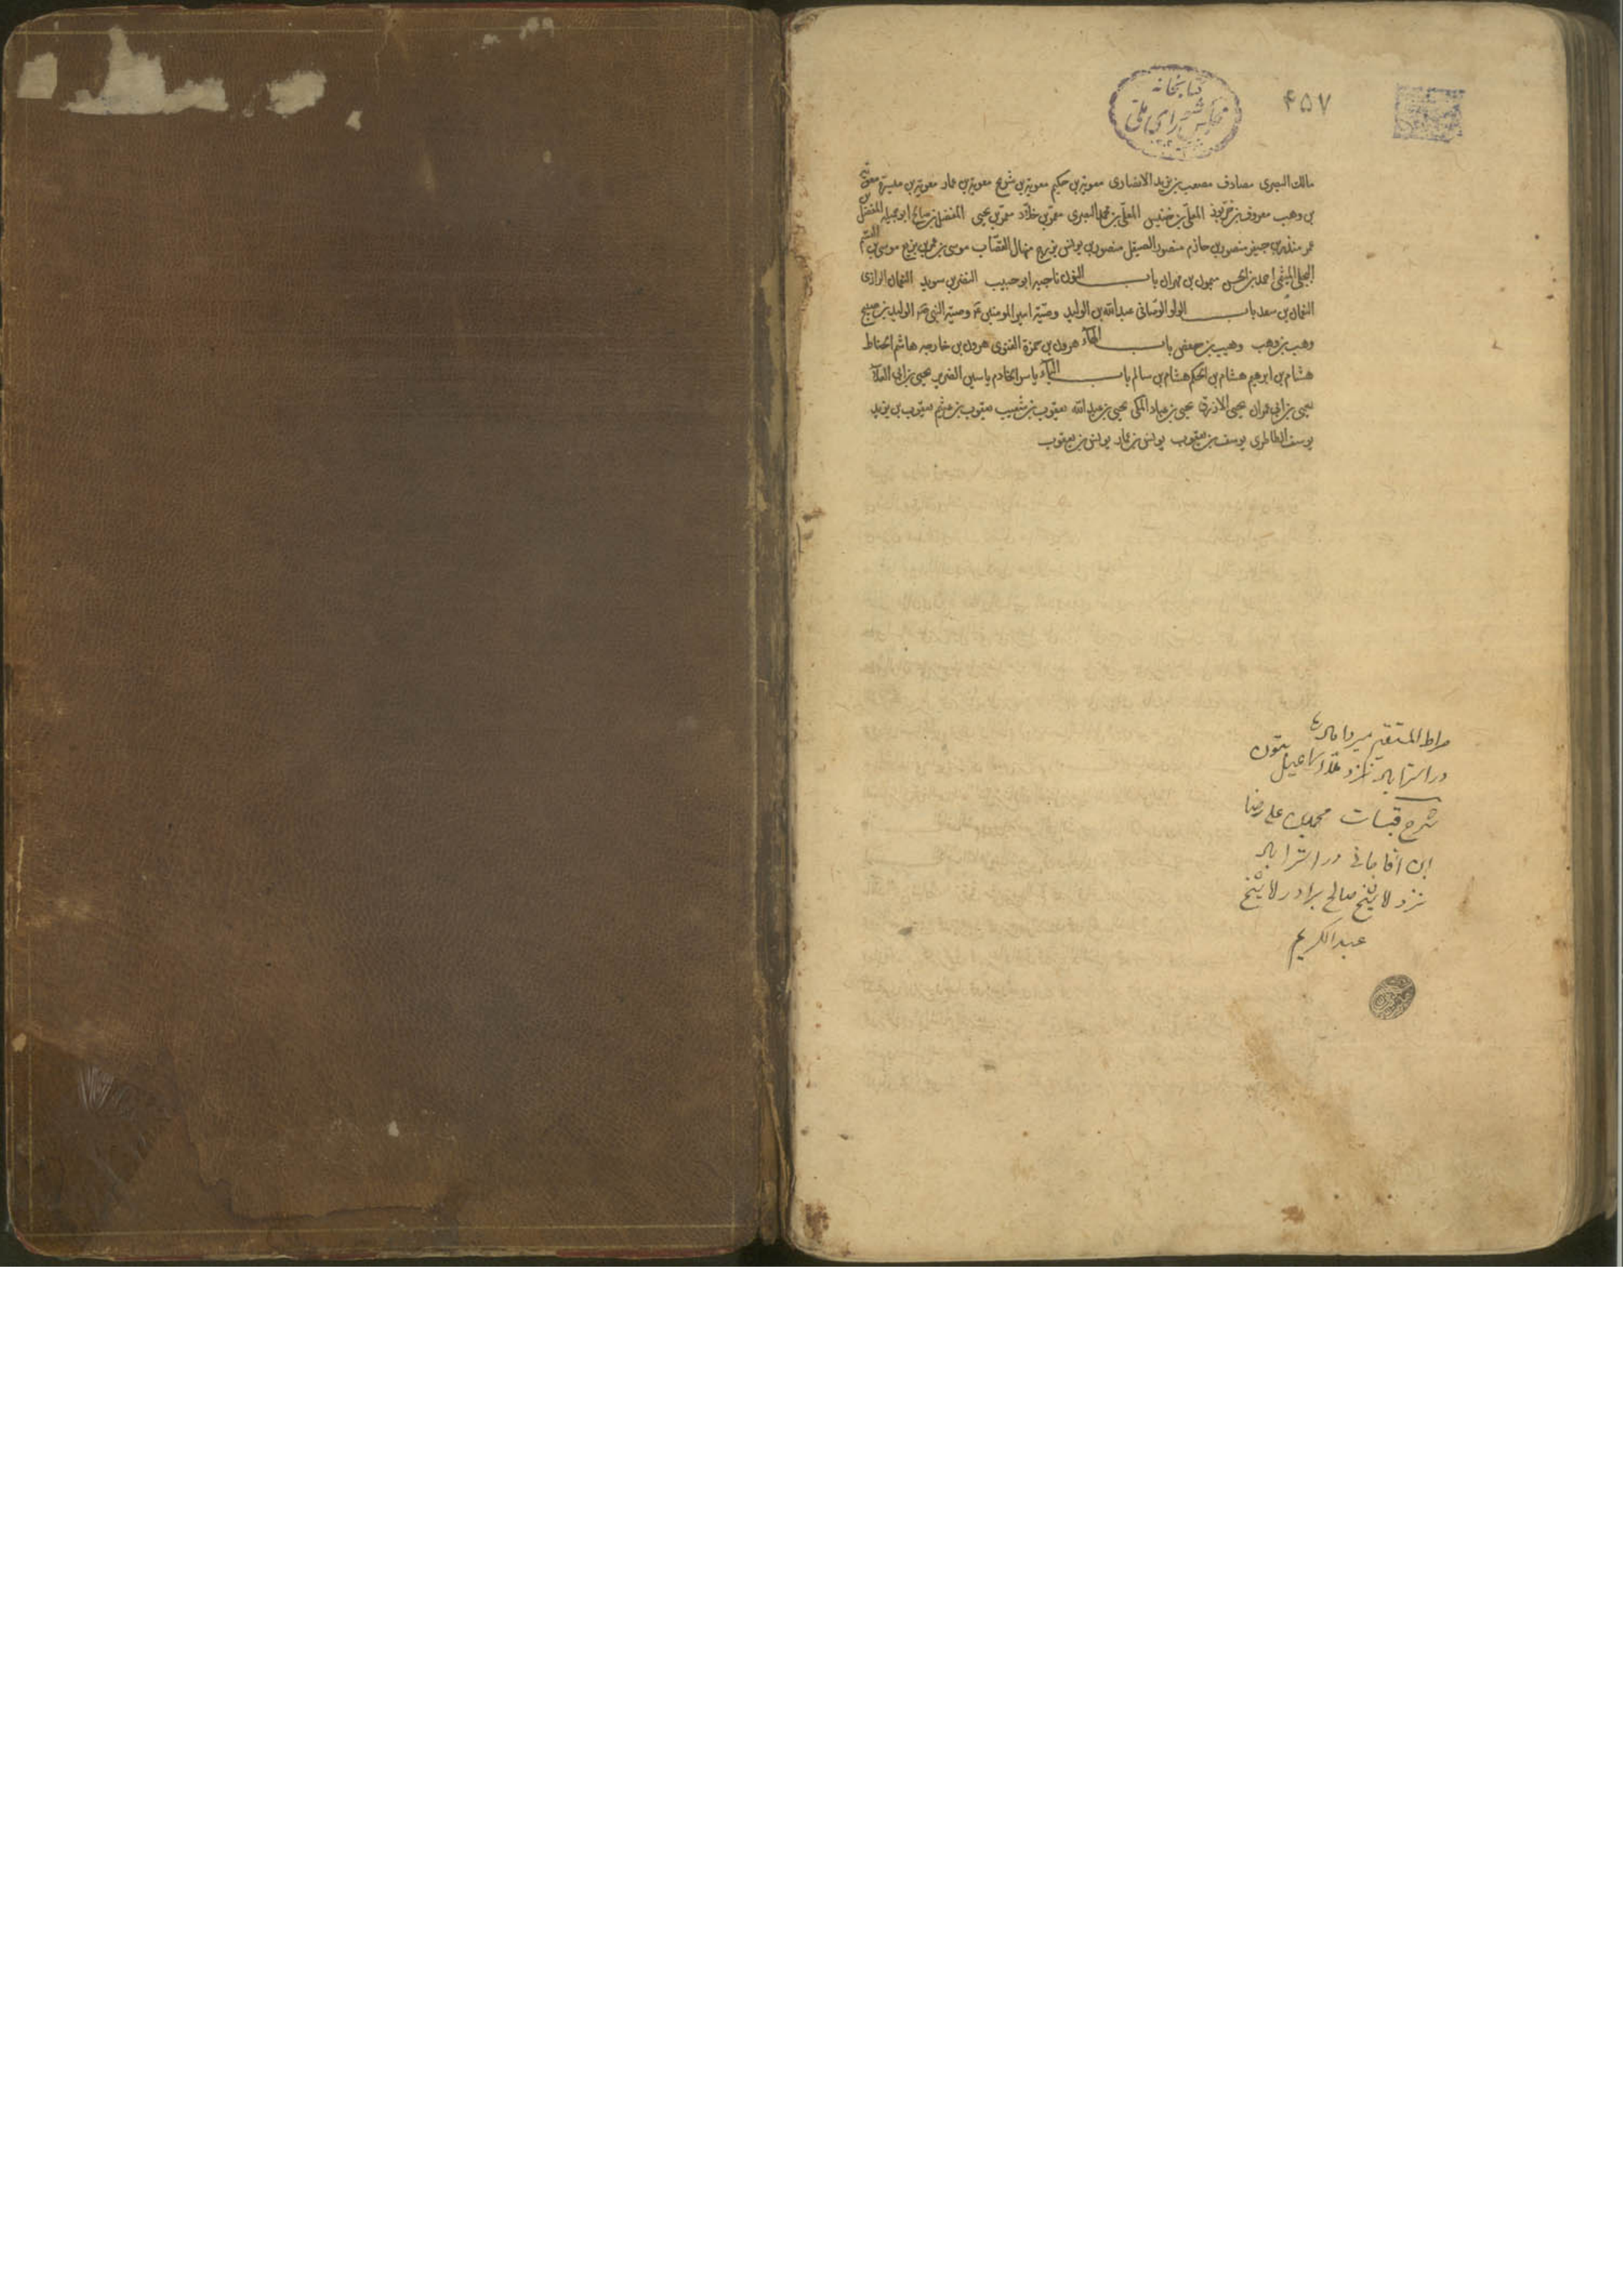 کتابخانه
مجلس شورای ملی
۴۵۷
مالك البصری مصادف مصعب بن یزید الانصاری معویة بن حکیم معویة بن شریح معویة بن عمار معویة بن میسرة معویة
بن وهب معروف بن خربوذ المعلی بن خنیس المعلی بن محمد البصری معمر بن خلاد معمر بن یحیی المفضل بن صالح ابو جمیله المفضل بن
عمر منذر بن جیفر منصور بن حازم منصور الصیقل منصور بن یونس بزرج منهال القصاب موسی بن عمر بن بزیع موسی بن القسم
البجلی المیثمی احمد بن الحسن میمون بن مهران باب النون ناجیه ابو حبیب النضر بن سوید النعمان الرازی
النعمان بن سعد باب الواو الوصافی عبدالله بن الولید وصیة امیر المومنین وصیة النبی الولید بن صبیح
وهب بن وهب وهیب بن حفص باب الهاء هرون بن حمزة الغنوی هرون بن خارجه هاشم الحناط
هشام بن ابرهیم هشام بن الحکم هشام بن سالم باب الیاء یاسر الخادم یاسین الضریر یحیی بن ابی العلاء
یحیی بن ابی عمران یحیی الازرق یحیی بن عباد المکی یحیی بن عبدالله یعقوب بن شعیب یعقوب بن عیثم یعقوب بن یزید
یوسف الطاطری یوسف بن یعقوب یونس بن عمار یونس بن یعقوب
صراط المستقیم میرداماد
در استراباد نزد ملا اسماعیل
شرح قبسات محمد بن علی رضا
ابن آقاجانی در استراباد
نزد لا شیخ صالح برادر لا شیخ
عبدالکریم